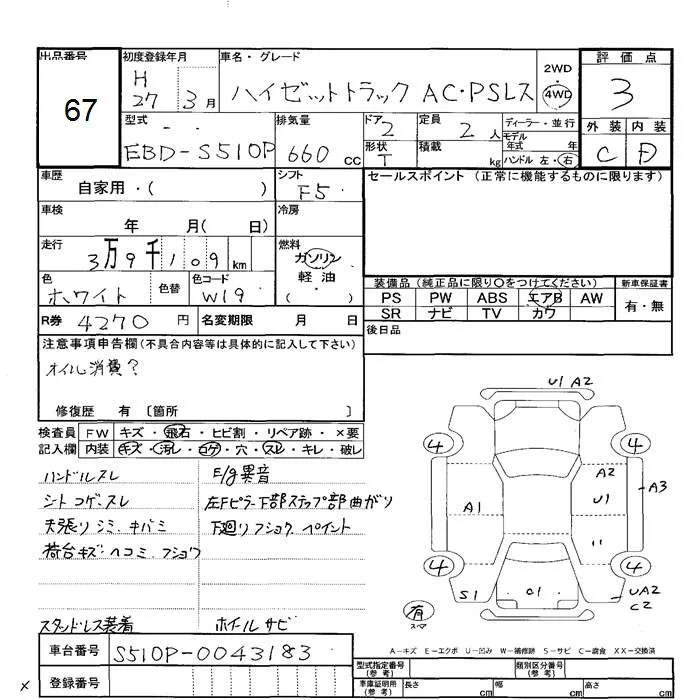 出品番号 67
初度登録年月 H 27 3月
車名・グレード ハイゼットトラック AC・PSLス
2WD・4WD
評価点 3
外装 C 内装 D
型式 EBD-S510P
排気量 660 cc
ドア 2
形状 T
定員 2人
積載 kg
ディーラー・並行
モデル年式 年
ハンドル 左・右
車歴 自家用・( )
シフト F5
セールスポイント (正常に機能するものに限ります)
車検 年 月( 日)
冷房
走行 3万9千109 km
燃料 ガソリン 軽油 ( )
色 ホワイト 色替
色コード W19
装備品 (純正品に限り○をつけてください)
PS PW ABS エアB AW
SR ナビ TV カワ
新車保証書 有・無
R券 4270 円 名変期限 月 日
後日品
注意事項申告欄(不具合内容等は具体的に記入して下さい)
オイル消費?
修復歴 有 〔箇所 〕
検査員記入欄
FW キズ・飛石・ヒビ割・リペア跡・×要
内装 キズ・汚レ・コゲ・穴・スレ・キレ・破レ
ハンドルスレ
E/g異音
シートコゲ、スレ
左Fピラー下部ステップ部曲がり
天張りシミ、キバミ
下廻りフショク、ペイント
荷台キズ・ヘコミ、フショク
スタッドレス装着
ホイルサビ
U1 A2
4 4
A2
A1 U1 A3
4 4
S1 C1 UA2 C2
有 スマ
A-キズ E-エクボ U-凹み W-補修跡 S-サビ C-腐食 XX-交換済
車台番号 S510P-0043183
登録番号
×
型式指定番号 (参考)
類別区分番号 (参考)
車庫証明用 (参考) 長さ cm 幅 cm 高さ cm